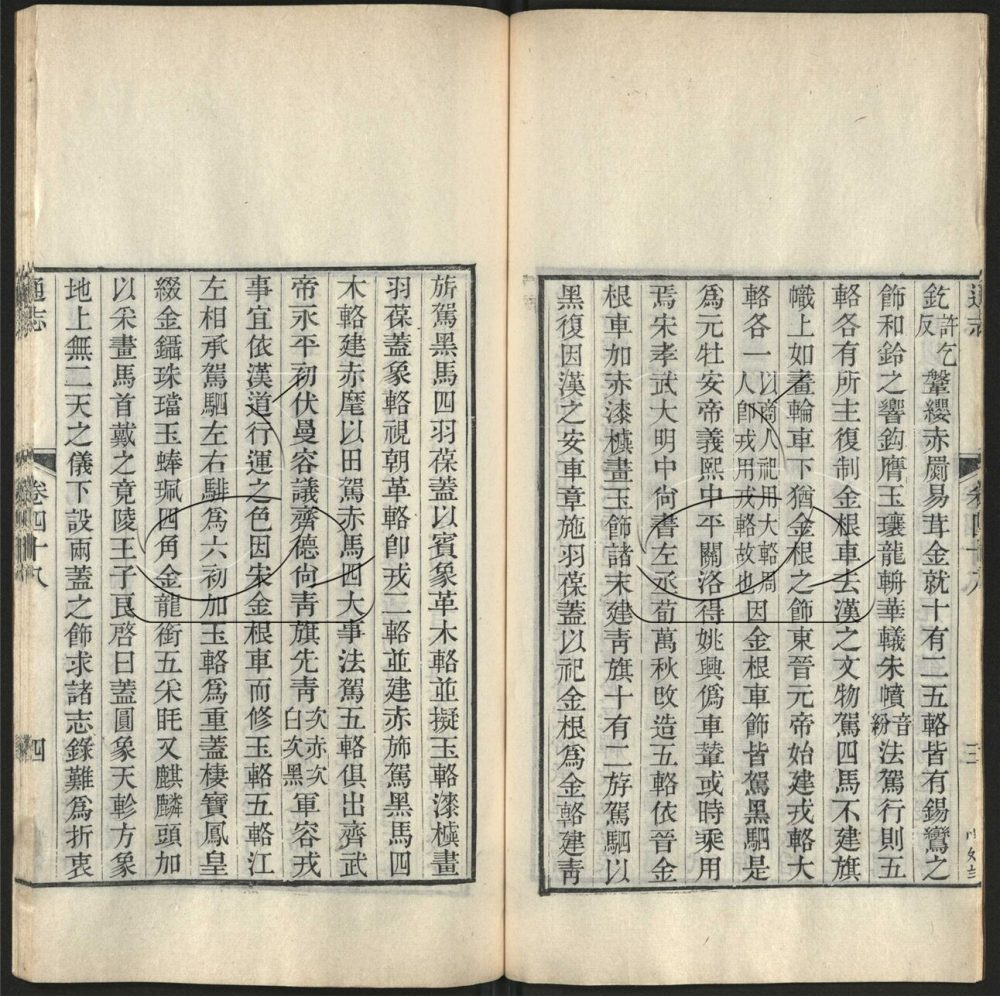 釳許乞反鞶纓赤罽易茸金就十有二五輅皆有錫鸞之
飾和鈴之響鈎膺玉瓖龍輈華轙朱幩音紛法駕行則五
輅各有所主復制金根車去漢之文物駕四馬不建旗
幟上如畫輪車下猶金根之飾東晉元帝始建戎輅大
輅各一以商人祀用大輅周人卽戎用戎輅故也因金根車飾皆駕黑駟是
爲元牡安帝義熙中平關洛得姚興僞車輦或時乘用
焉宋孝武大明中尙書左丞荀萬秋改造五輅依晉金
根車加赤漆樻畫玉飾諸末建靑旗十有二斿駕駟以
黑復因漢之安車章施羽葆蓋以祀金根爲金輅建靑
通志
卷四十八
三
旂駕黑馬四羽葆蓋以賓象革木輅並擬玉輅漆樻畫
羽葆蓋象輅視朝革輅卽戎二輅並建赤旆駕黑馬四
木輅建赤麾以田駕赤馬四大事法駕五輅俱出齊武
帝永平初伏曼容議齊德尙靑旗先靑次赤次白次黑軍容戎
事宜依漢道行運之色因宋金根車而修玉輅五輅江
左相承駕駟左右騑爲六初加玉輅爲重蓋棲寶鳳皇
綴金鑷珠璫玉蜯珮四角金龍銜五采眊又麒麟頭加
以采畫馬首戴之竟陵王子良啓曰蓋圓象天軫方象
地上無二天之儀下設兩蓋之飾求諸志錄難爲折衷
通志
卷四十八
四